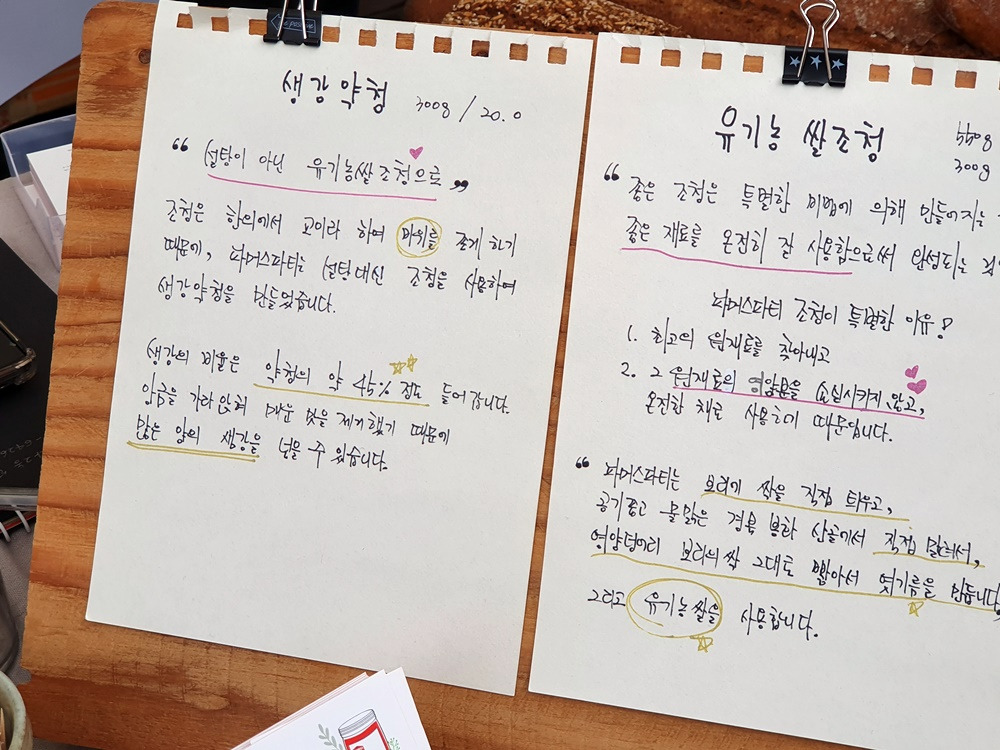 생강약청 300g / 20.0
“ 설탕이 아닌 유기농쌀조청으로 ”
조청은 한의에서 교이라 하여 비위를 좋게 하기
때문에, 파머스파티는 설탕대신 조청을 사용하여
생강약청을 만들었습니다.
생강의 비율은 약청의 약 45% 정도 들어갑니다.
앙금을 가라앉혀 매운 맛을 제거했기 때문에
많은 양의 생강을 넣을 수 있습니다.
유기농 쌀조청
550g
300g
“ 좋은 조청은 특별한 비법에 의해 만들어지는
좋은 재료를 온전히 잘 사용함으로써 완성되는
파머스파티 조청이 특별한 이유!
1. 최고의 원재료를 찾아내고
2. 그 원재료의 영양분을 손실시키지 않고,
온전한 채로 사용하기 때문입니다.
“ 파머스파티는 보리에 싹을 직접 틔우고,
공기좋고 물맑은 경북 봉화 산골에서 직접 말려서,
영양덩어리 보리의싹 그대로 빻아서 엿기름을 만듭니다
그리고 유기농쌀을 사용합니다.